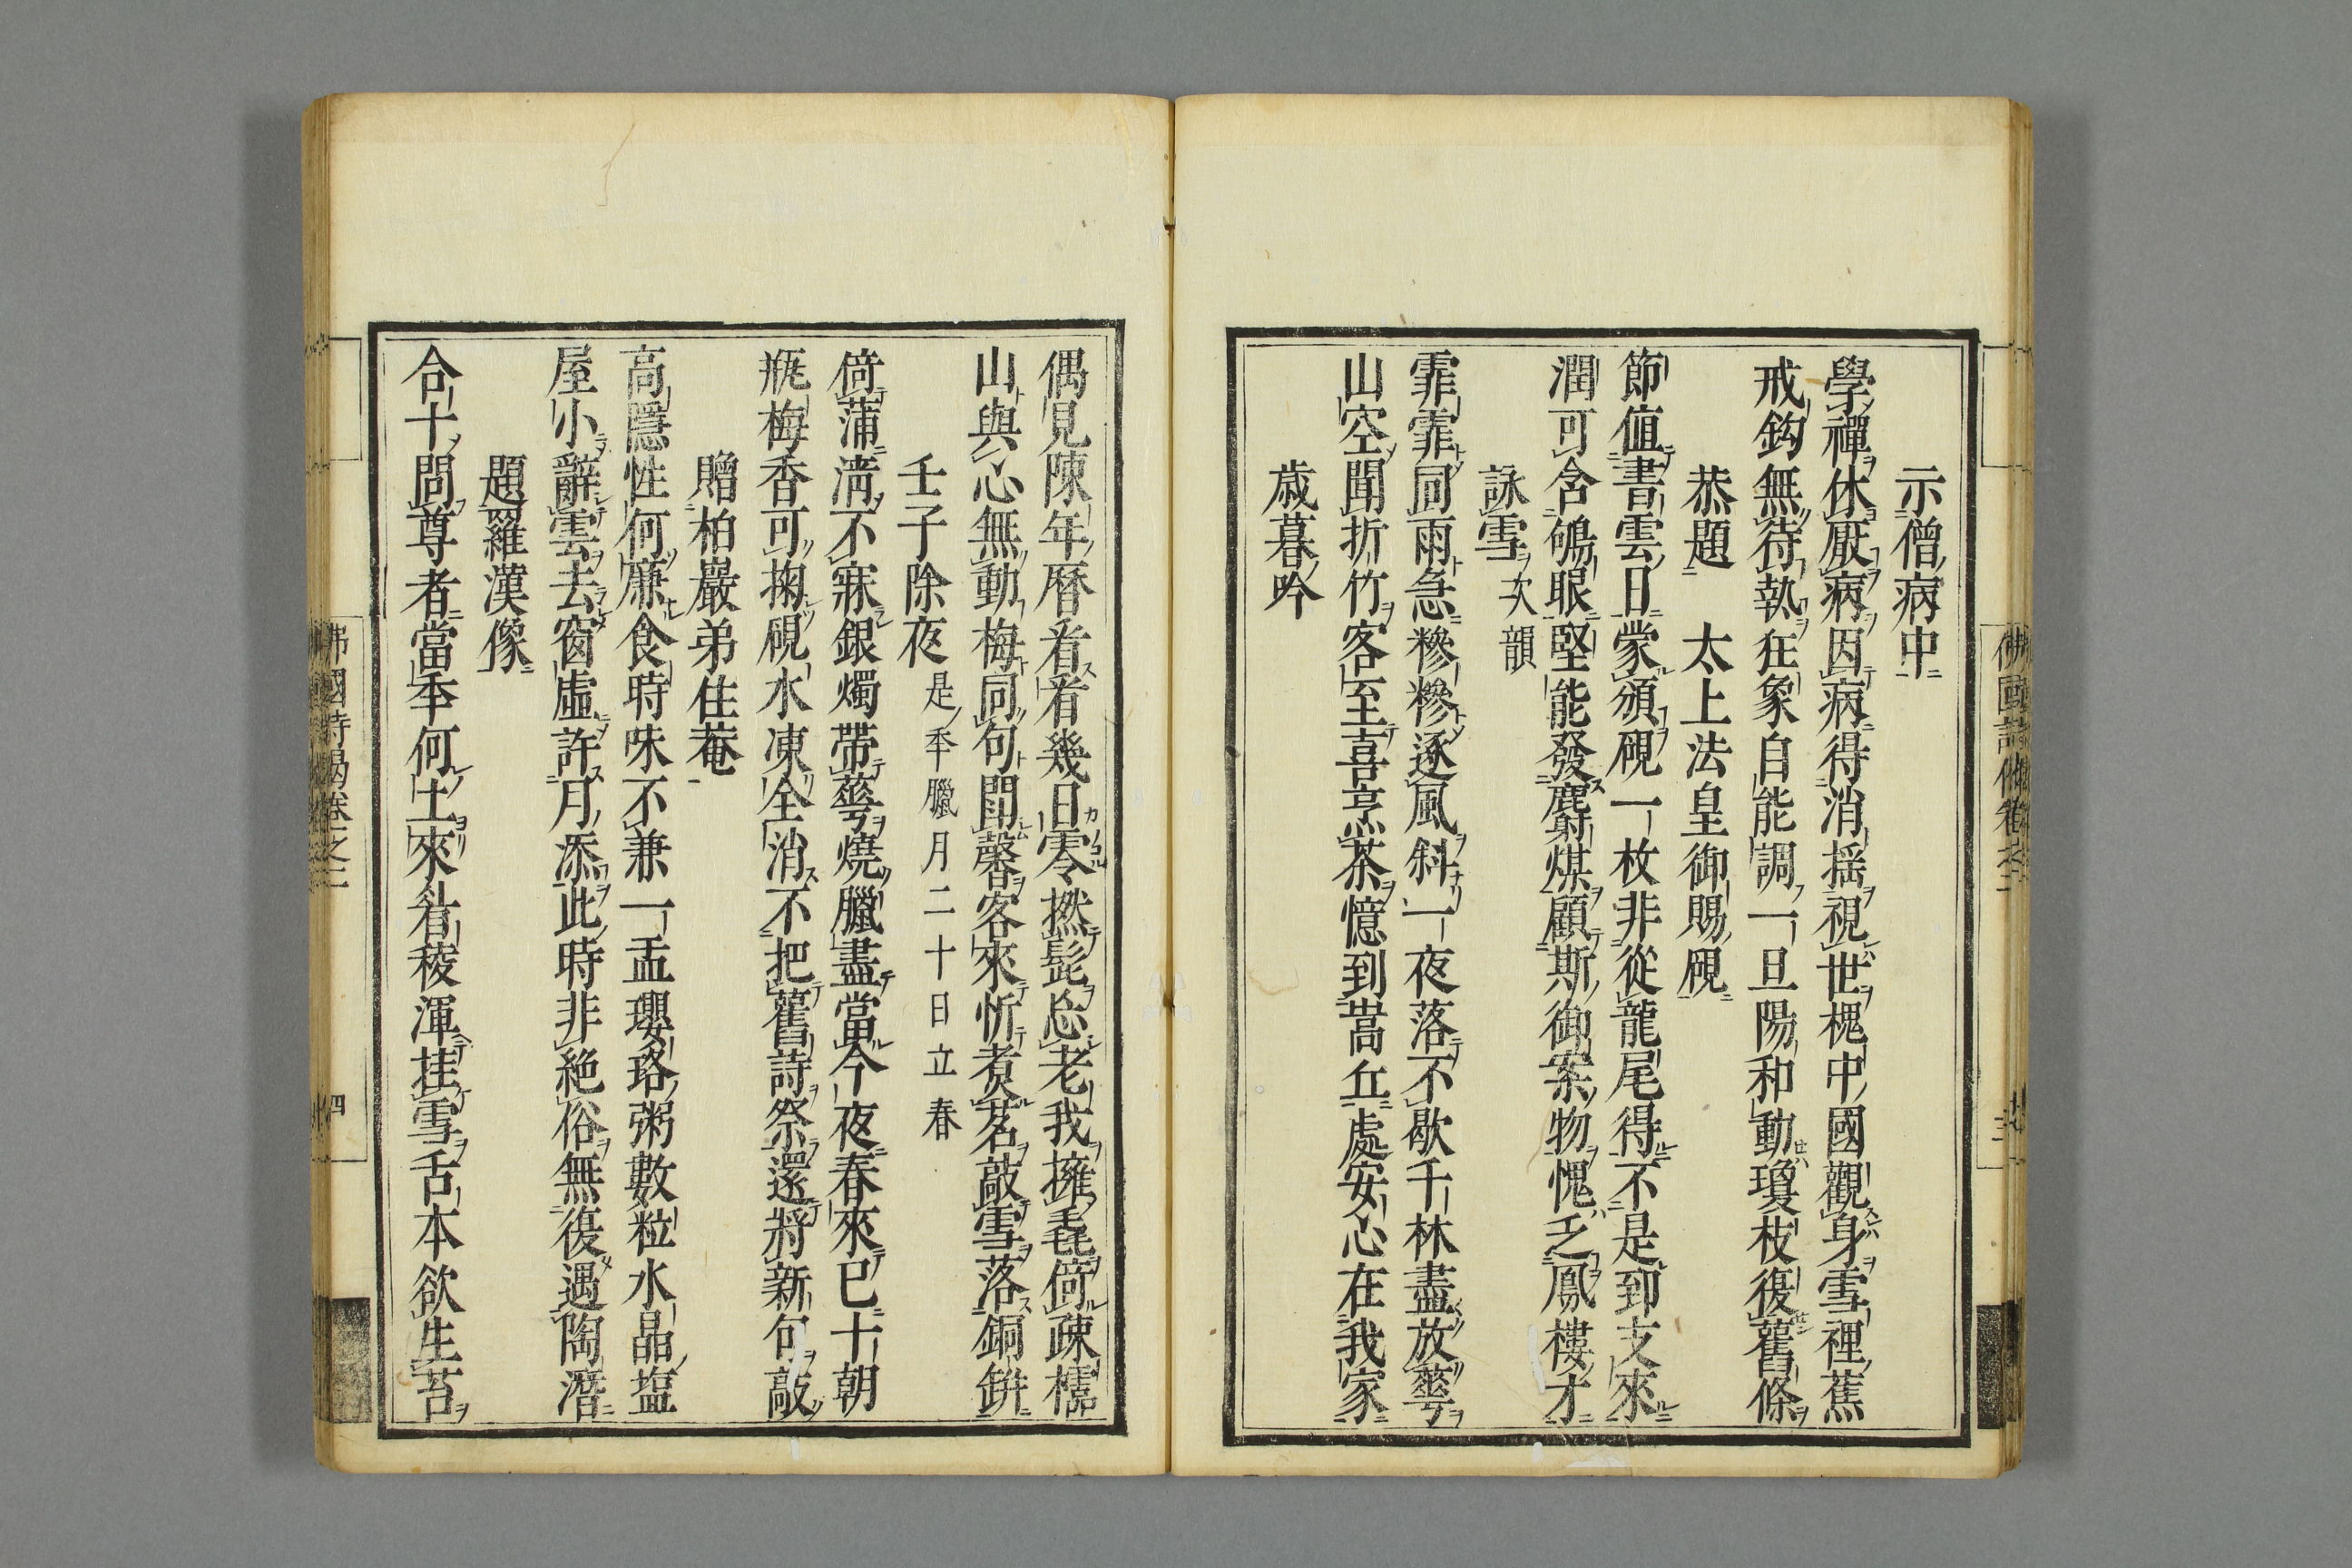 示僧病中
學禪休厭病因病得消搖視世槐中國觀身雪裡蕉
戒鈎無待執狂象自能調一旦陽和動瓊枝復舊條
恭題　太上法皇御賜硯
節値書雲日蒙頒硯一枚非從龍尾得不是卽支來
潤可含鴝眼堅能發麝煤顧斯御案物愧乏鳳樓才
詠雪次韻
霏霏同雨急糝糝逐風斜一夜落不歇千林盡放蕚
山空聞折竹客至喜烹茶憶到嵩丘處安心在我家
歳暮吟
偶見陳年曆看看幾日零撚髭忘老我擁毳倚疎櫺
山與心無動梅同句閗馨客來忻煑茗敲雪落銅缾
壬子除夜是秊臘月二十日立春
倚蒲淸不寐銀燭帶蕚燒臘盡當今夜春來已十朝
瓶梅香可掬硯水凍全消不把舊詩祭還將新句敲
贈柏巖弟住菴
高隱性何廉食時味不兼一盂瓔珞粥數粒水晶塩
屋小辭雲去窗虛許月添此時非絶俗無復遇陶潛
題羅漢像
合十問尊者當秊何土來眉稜渾挂雪舌本欲生苔
佛國詩偈卷之二
佛國詩偈卷之二
四